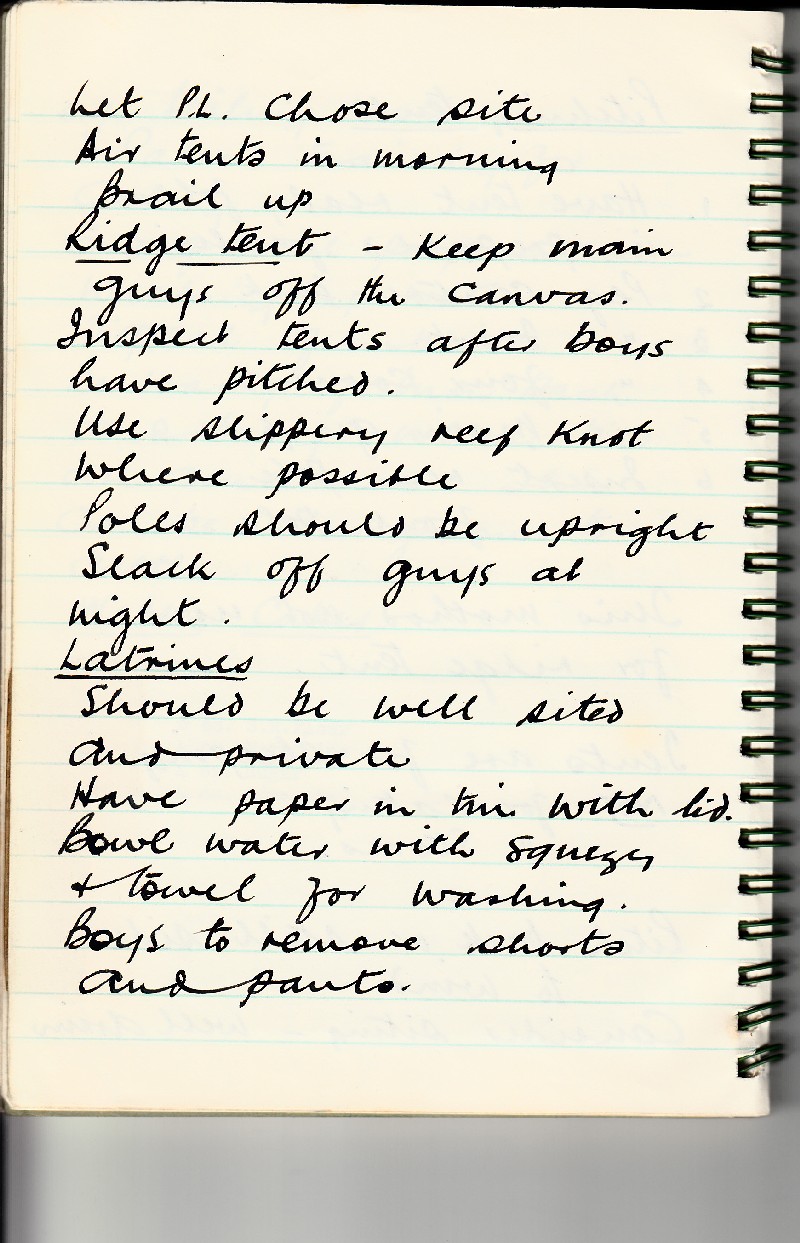 Let P.L. Chose site
Air tents in morning
Brail up
Ridge tent - Keep main
guys off the canvas.
Inspect tents after boys
have pitched.
Use slippery reef Knot
where possible
Poles should be upright
Slack off guys at
night.
Latrines
Should be well sited
and private
Have paper in tin with lid.
Bowl water with Squezy
+ towel for washing.
Boys to remove shorts
and pants.